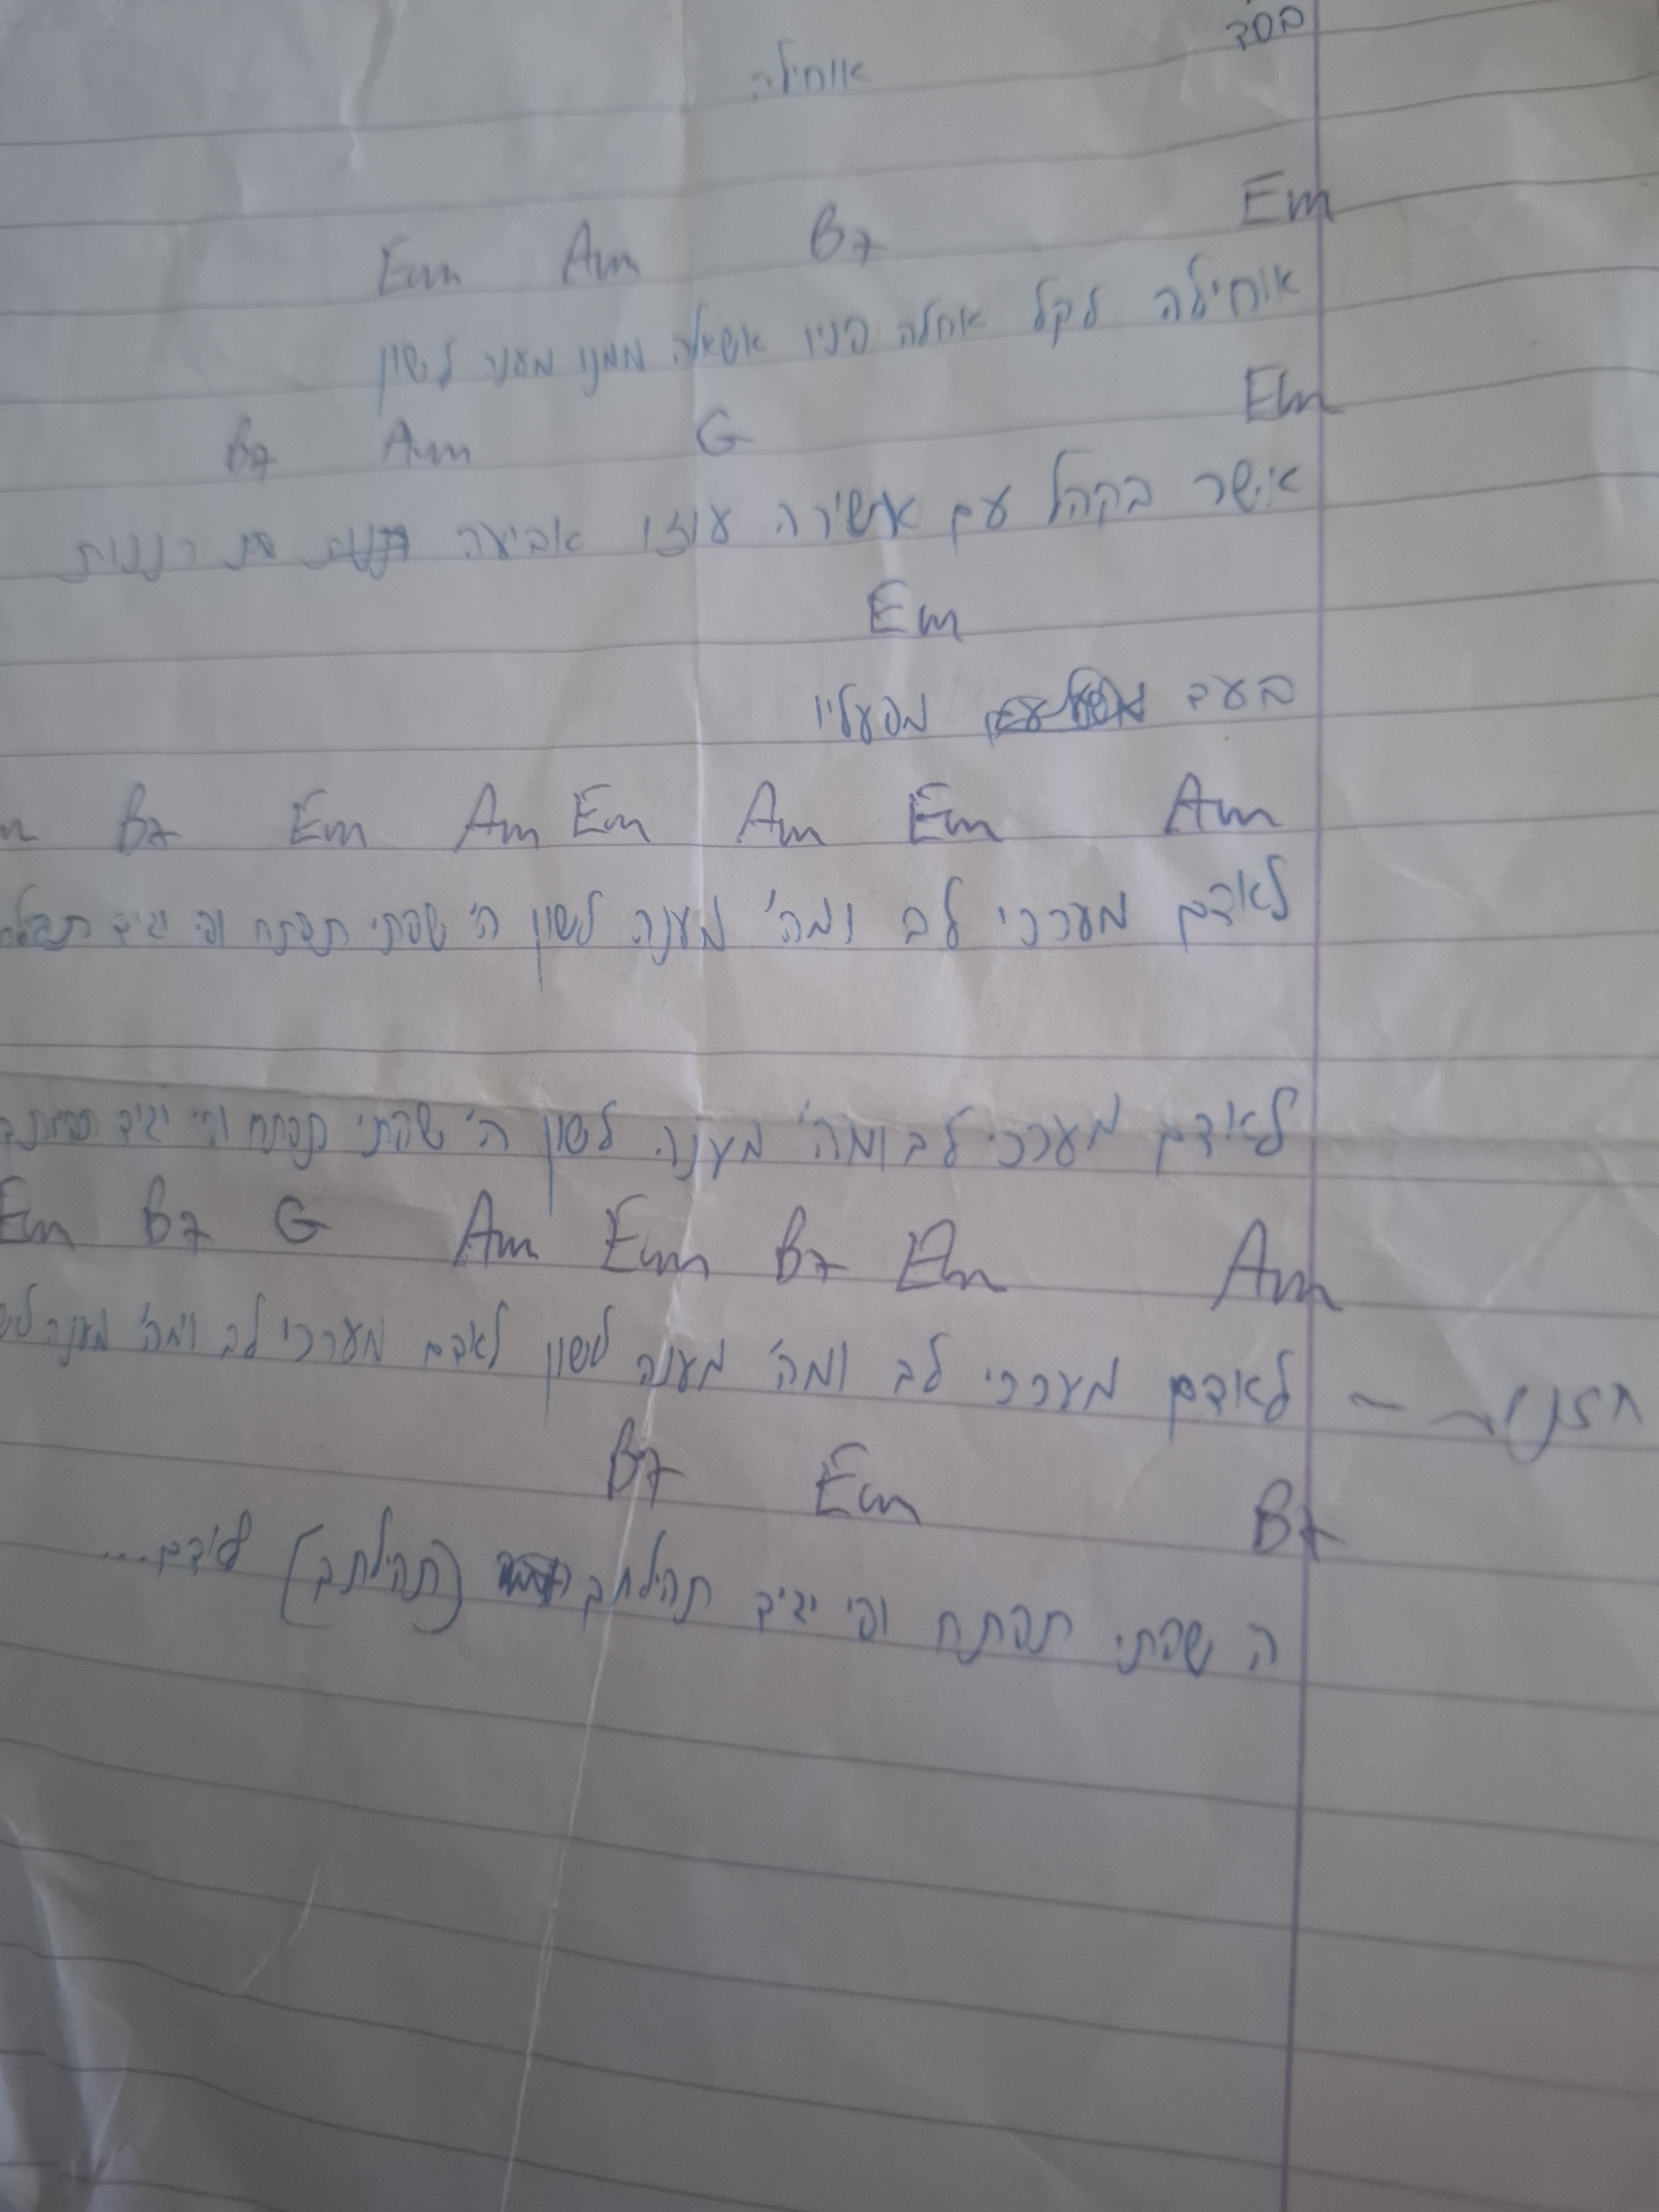 בסד
אוחילה
Em B7 Am Em
אוחילה לקל אחלה פניו אשאלה ממנו מענה לשון
Em G Am B7
אשר בקהל עם אשירה עוזו אביעה רננות
Em
בעד מפעליו
Am Em Am Em Am Em B7
לאדם מערכי לב ומה' מענה לשון ה' שפתי תפתח ופי יגיד
לאדם מערכי לב ומה' מענה לשון ה' שפתי תפתח ופי יגיד
Am Em B7 Em Am G B7 Em
לאדם מערכי לב ומה' מענה לשון לאדם מערכי לב ומה' מענה
B7 Em B7
ה שפתי תפתח ופי יגיד תהילתך (תהילתך) לאדם...